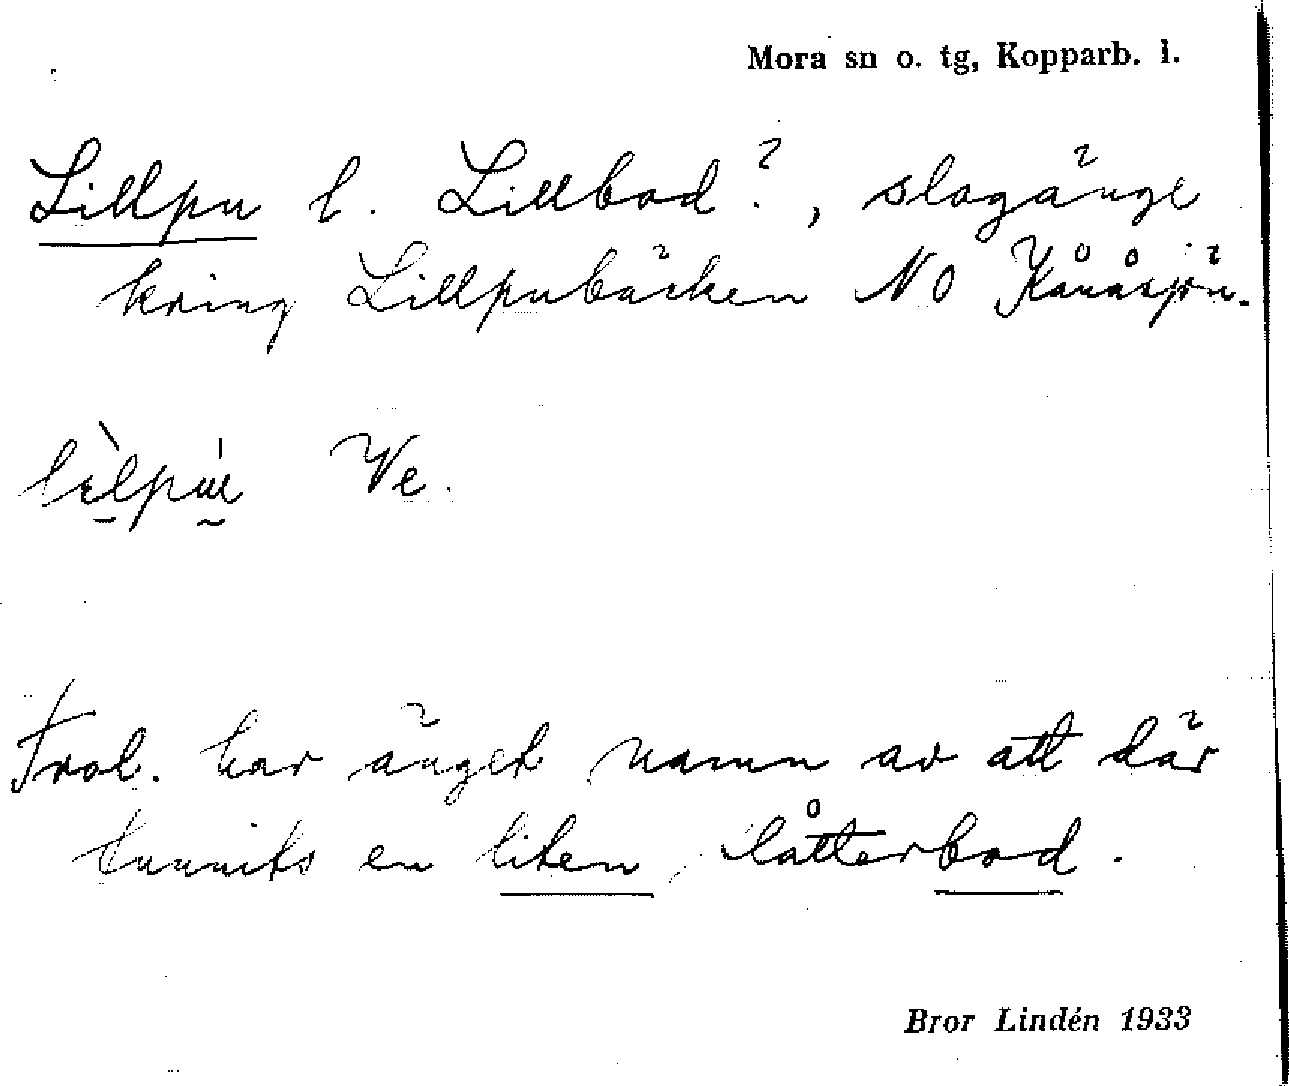 Mora sn o. tg, Kopparb. l.
Lillpu l. Lillbod?, slogänge
kring Lillpubäcken NO Kånåsjön.
Ve.
Trol. har änget namn av att där
funnits en liten slåtterbod.
Bror Lindén 1933